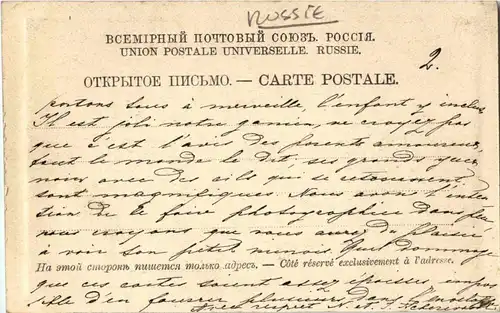 RUSSIE
ВСЕМІРНЫЙ ПОЧТОВЫЙ СОЮЗЪ. РОССІЯ.
UNION POSTALE UNIVERSELLE. RUSSIE.
2.
ОТКРЫТОЕ ПИСЬМО. — CARTE POSTALE.
portons tous à merveille, l'enfant y inclus
Il est joli notre gamin, ne croyez pas
que c'est l'avis des parents amoureux,
tout le monde le dit, ses grands yeux
noirs avec des cils qui se retournent
sont magnifiques. Nous avons l'inten
tion de le faire photographier dans peu
nous croyons que vous aurez du plaisir
à voir son petit minois. Quel dommage
На этой сторонѣ пишется только адресъ. — Côté réservé exclusivement à l'adresse.
que ces cartes soient assez épaisses, impos
sible d'en fourrer plusieurs dans
Avec respect N. et J.